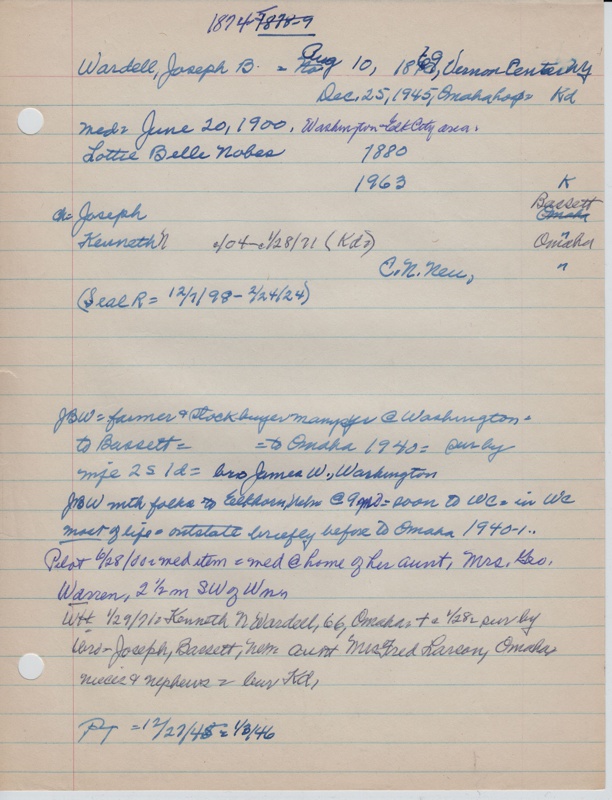 1874-1878-9
Wardell, Joseph B. = Aug 10, 18 , Vernon Center, NY
Dec. 25, 1945, Omaha hosp = Kd
med = June 20, 1900. Washington-Elk City area.
Lottie Belle Nobes 1880
1963 K
Bassett
ch = Joseph Omaha
Kenneth N /04 - 1/28/71 (Kd) Omaha
C. N. Neu, "
(Seal R = 12/7/98 - 2/24/24)
JBW = farmer & stockbuyer many yrs @ Washington =
to Bassett = = to Omaha 1940 = sur by
wife 2 s 1 d = bro James W., Washington
JBW with folks to Elkhorn, Nebr @ 9 mo = soon to WC = in WC
most of life = outstate briefly before to Omaha 1940-1..
Pilot 6/28/00 = med item = med @ home of her aunt, Mrs. Geo.
Warren, 2 1/2 m SW of Wnn
WH 1/29/71 = Kenneth N Wardell, 66, Omaha = + = 1/28 = sur by
bro = Joseph, Bassett, Nebr = aunt Mrs Fred Larson, Omaha =
nieces & nephews = bur Kd,
PT = 12/27/45 = 1/3/46